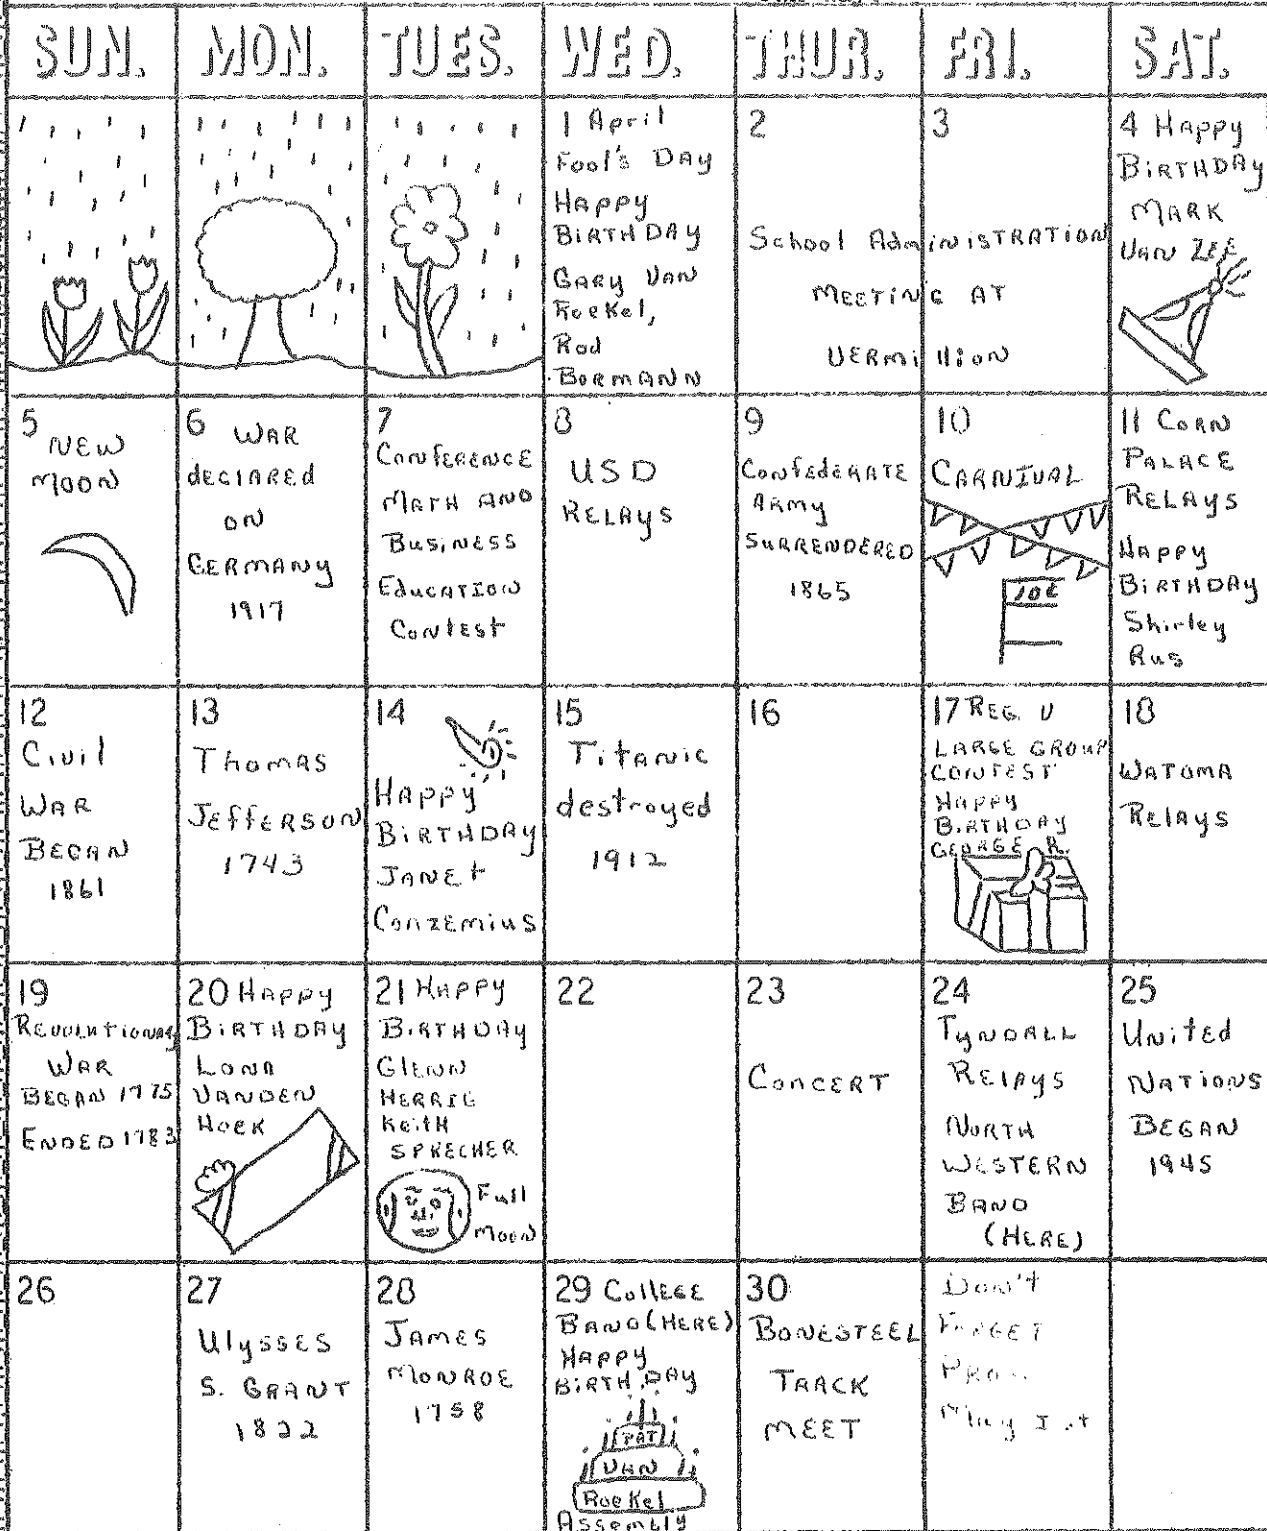 SUN. MON. TUES. WED. THUR. FRI. SAT.
1 April
Fool's DAY
HAPPY
BIRTHDAY
GARY VAN
Roekel,
Rod
BORMANN
2
3
School AdmINISTRATION
MEETING AT
VERMIllION
4 HAPPY
BIRTHDAY
MARK
VAN ZEE
5
NEW
MOON
6 WAR
declARED
ON
GERMANY
1917
7
CONFERENCE
MATH AND
BUSINESS
EducATION
CONTEST
8
USD
RELAYS
9
CONFEdERATE
ARMY
SURRENDERED
1865
10
CARNIVAL
10¢
11 CORN
PALACE
RELAYS
HAPPY
BIRTHDAY
Shirley
Rus
12
Civil
WAR
BEGAN
1861
13
Thomas
JEffERSON
1743
14
HAPPY
BIRTHDAY
JANEt
CONZEMIUS
15
Titanic
destroyed
1912
16
17 REG. V
LARGE GROUP
CONTEST
HAPPY
BIRTHDAY
GEORGE R.
18
WATOMA
RElAYS
19
REVOLUTIONARY
WAR
BEGAN 1775
ENDED 1783
20 HAPPY
BIRTHDAY
LONA
VANDEN
HOEK
21 HAPPY
BIRTHDAY
GLENN
HERRIG
KEITH
SPRECHER
Full
Moon
22
23
CONCERT
24
TYNDALL
RElAYS
NORTH
WESTERN
BAND
(HERE)
25
UNited
NATIONS
BEGAN
1945
26
27
Ulysses
S. GRANT
1822
28
JAMES
MONROE
1758
29 COllEGE
BAND (HERE)
HAPPY
BIRTHDAY
PAT
VAN
Roekel
Assembly
30
BONESTEEL
TRACK
MEET
Don't
FORGET
May 1st